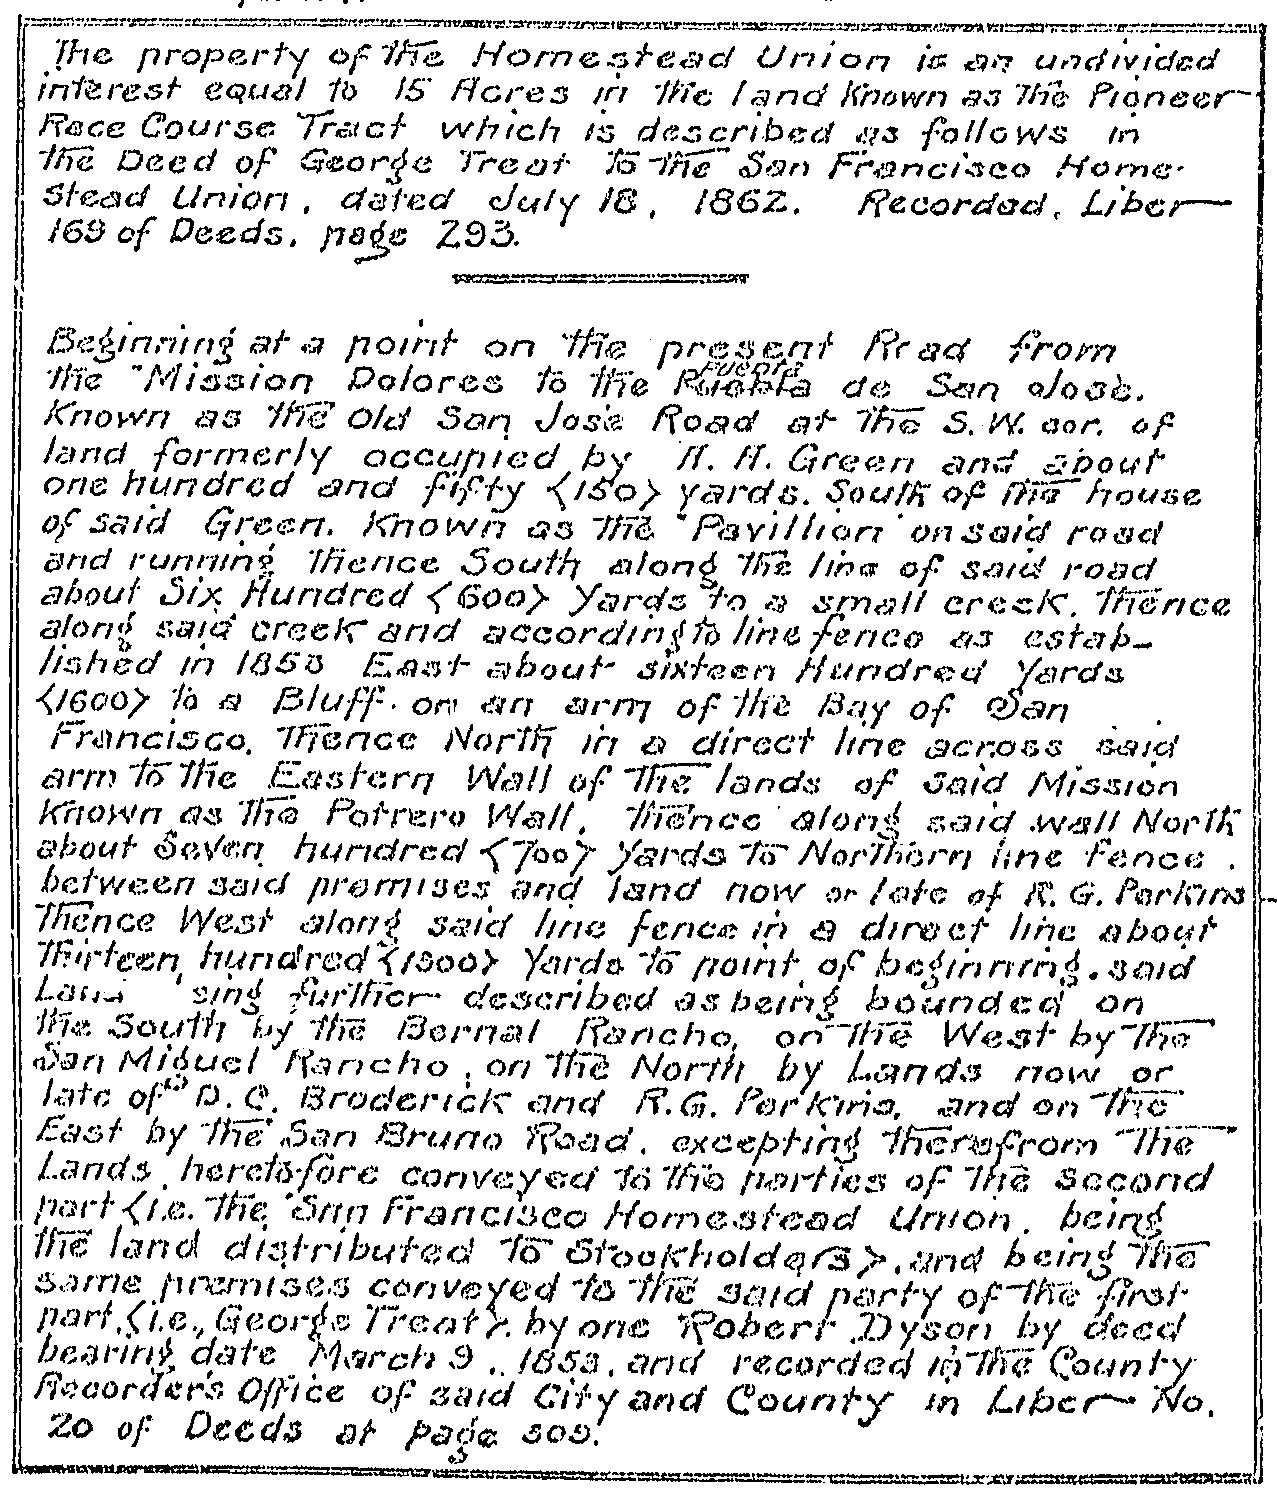 The property of the Homestead Union is an undivided
interest equal to 15 Acres in the land Known as The Pioneer
Race Course Tract which is described as follows in
the Deed of George Treat to the San Francisco Home-
stead Union, dated July 18, 1862. Recorded, Liber
169 of Deeds, page 293.
Beginning at a point on the present Road from
the "Mission Dolores to the Puebla de San Jose.
Known as the Old San Jose Road at the S.W. cor. of
land formerly occupied by H. H. Green and about
one hundred and fifty <150> yards. South of the house
of said Green. Known as the "Pavillion" on said road
and running thence South along the line of said road
about Six Hundred <600> Yards to a small creek. Thence
along said creek and according to line fence as estab-
lished in East about sixteen Hundred Yards
<1600> to a Bluff. on an arm of the Bay of San
Francisco. Thence North in a direct line across said
arm to the Eastern Wall of the lands of said Mission
known as the Potrero Wall, thence along said wall North
about Seven hundred <700> Yards to Northern line fence.
between said premises and land now or late of R. G. Perkins
Thence West along said line fence in a direct line about
Thirteen hundred <1300> Yards to point of beginning. said
Land further described as being bounded on
the South by the Bernal Rancho, on the West by the
San Miguel Rancho, on the North by Lands now or
late of D. C. Broderick and R. G. Perkins, and on the
East by the San Bruno Road, excepting therefrom the
Lands heretofore conveyed to the parties of the second
part <i.e. the San Francisco Homestead Union, being
the land distributed to Stockholders>, and being the
same premises conveyed to the said party of the first
part, <i.e., George Treat>, by one Robert Dyson by deed
bearing date March 9, and recorded in the County
Recorder's Office of said City and County in Liber No.
20 of Deeds at page